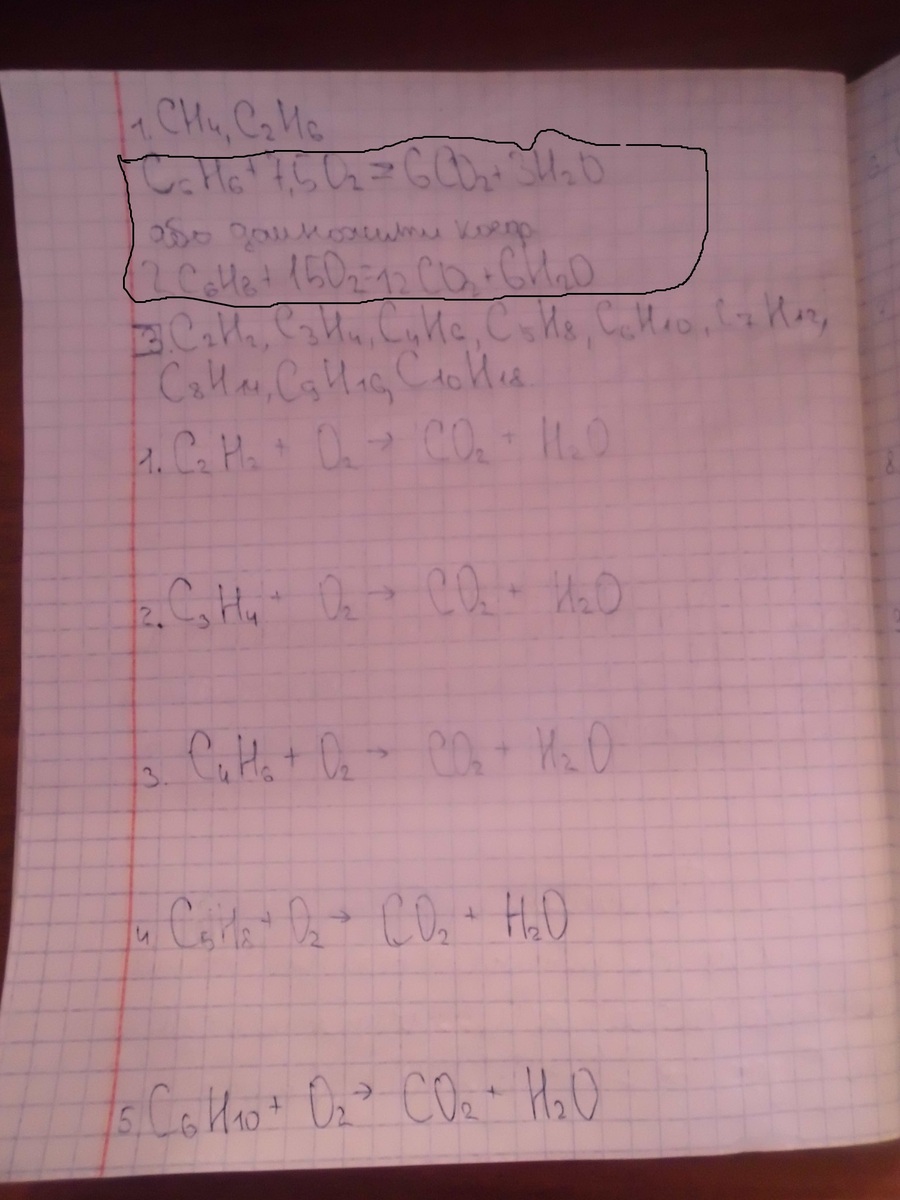 1. CH4, C2H6
C6H6 + 7,5O2 = 6CO2 + 3H2O
або домножити коеф
2 C6H6 + 15O2 = 12CO2 + 6H2O
3. C2H2, C3H4, C4H6, C5H8, C6H10, C7H12,
C8H14, C9H16, C10H18
1. C2H2 + O2 → CO2 + H2O
2. C3H4 + O2 → CO2 + H2O
3. C4H6 + O2 → CO2 + H2O
4 C5H8 + O2 → CO2 + H2O
5 C6H10 + O2 → CO2 + H2O